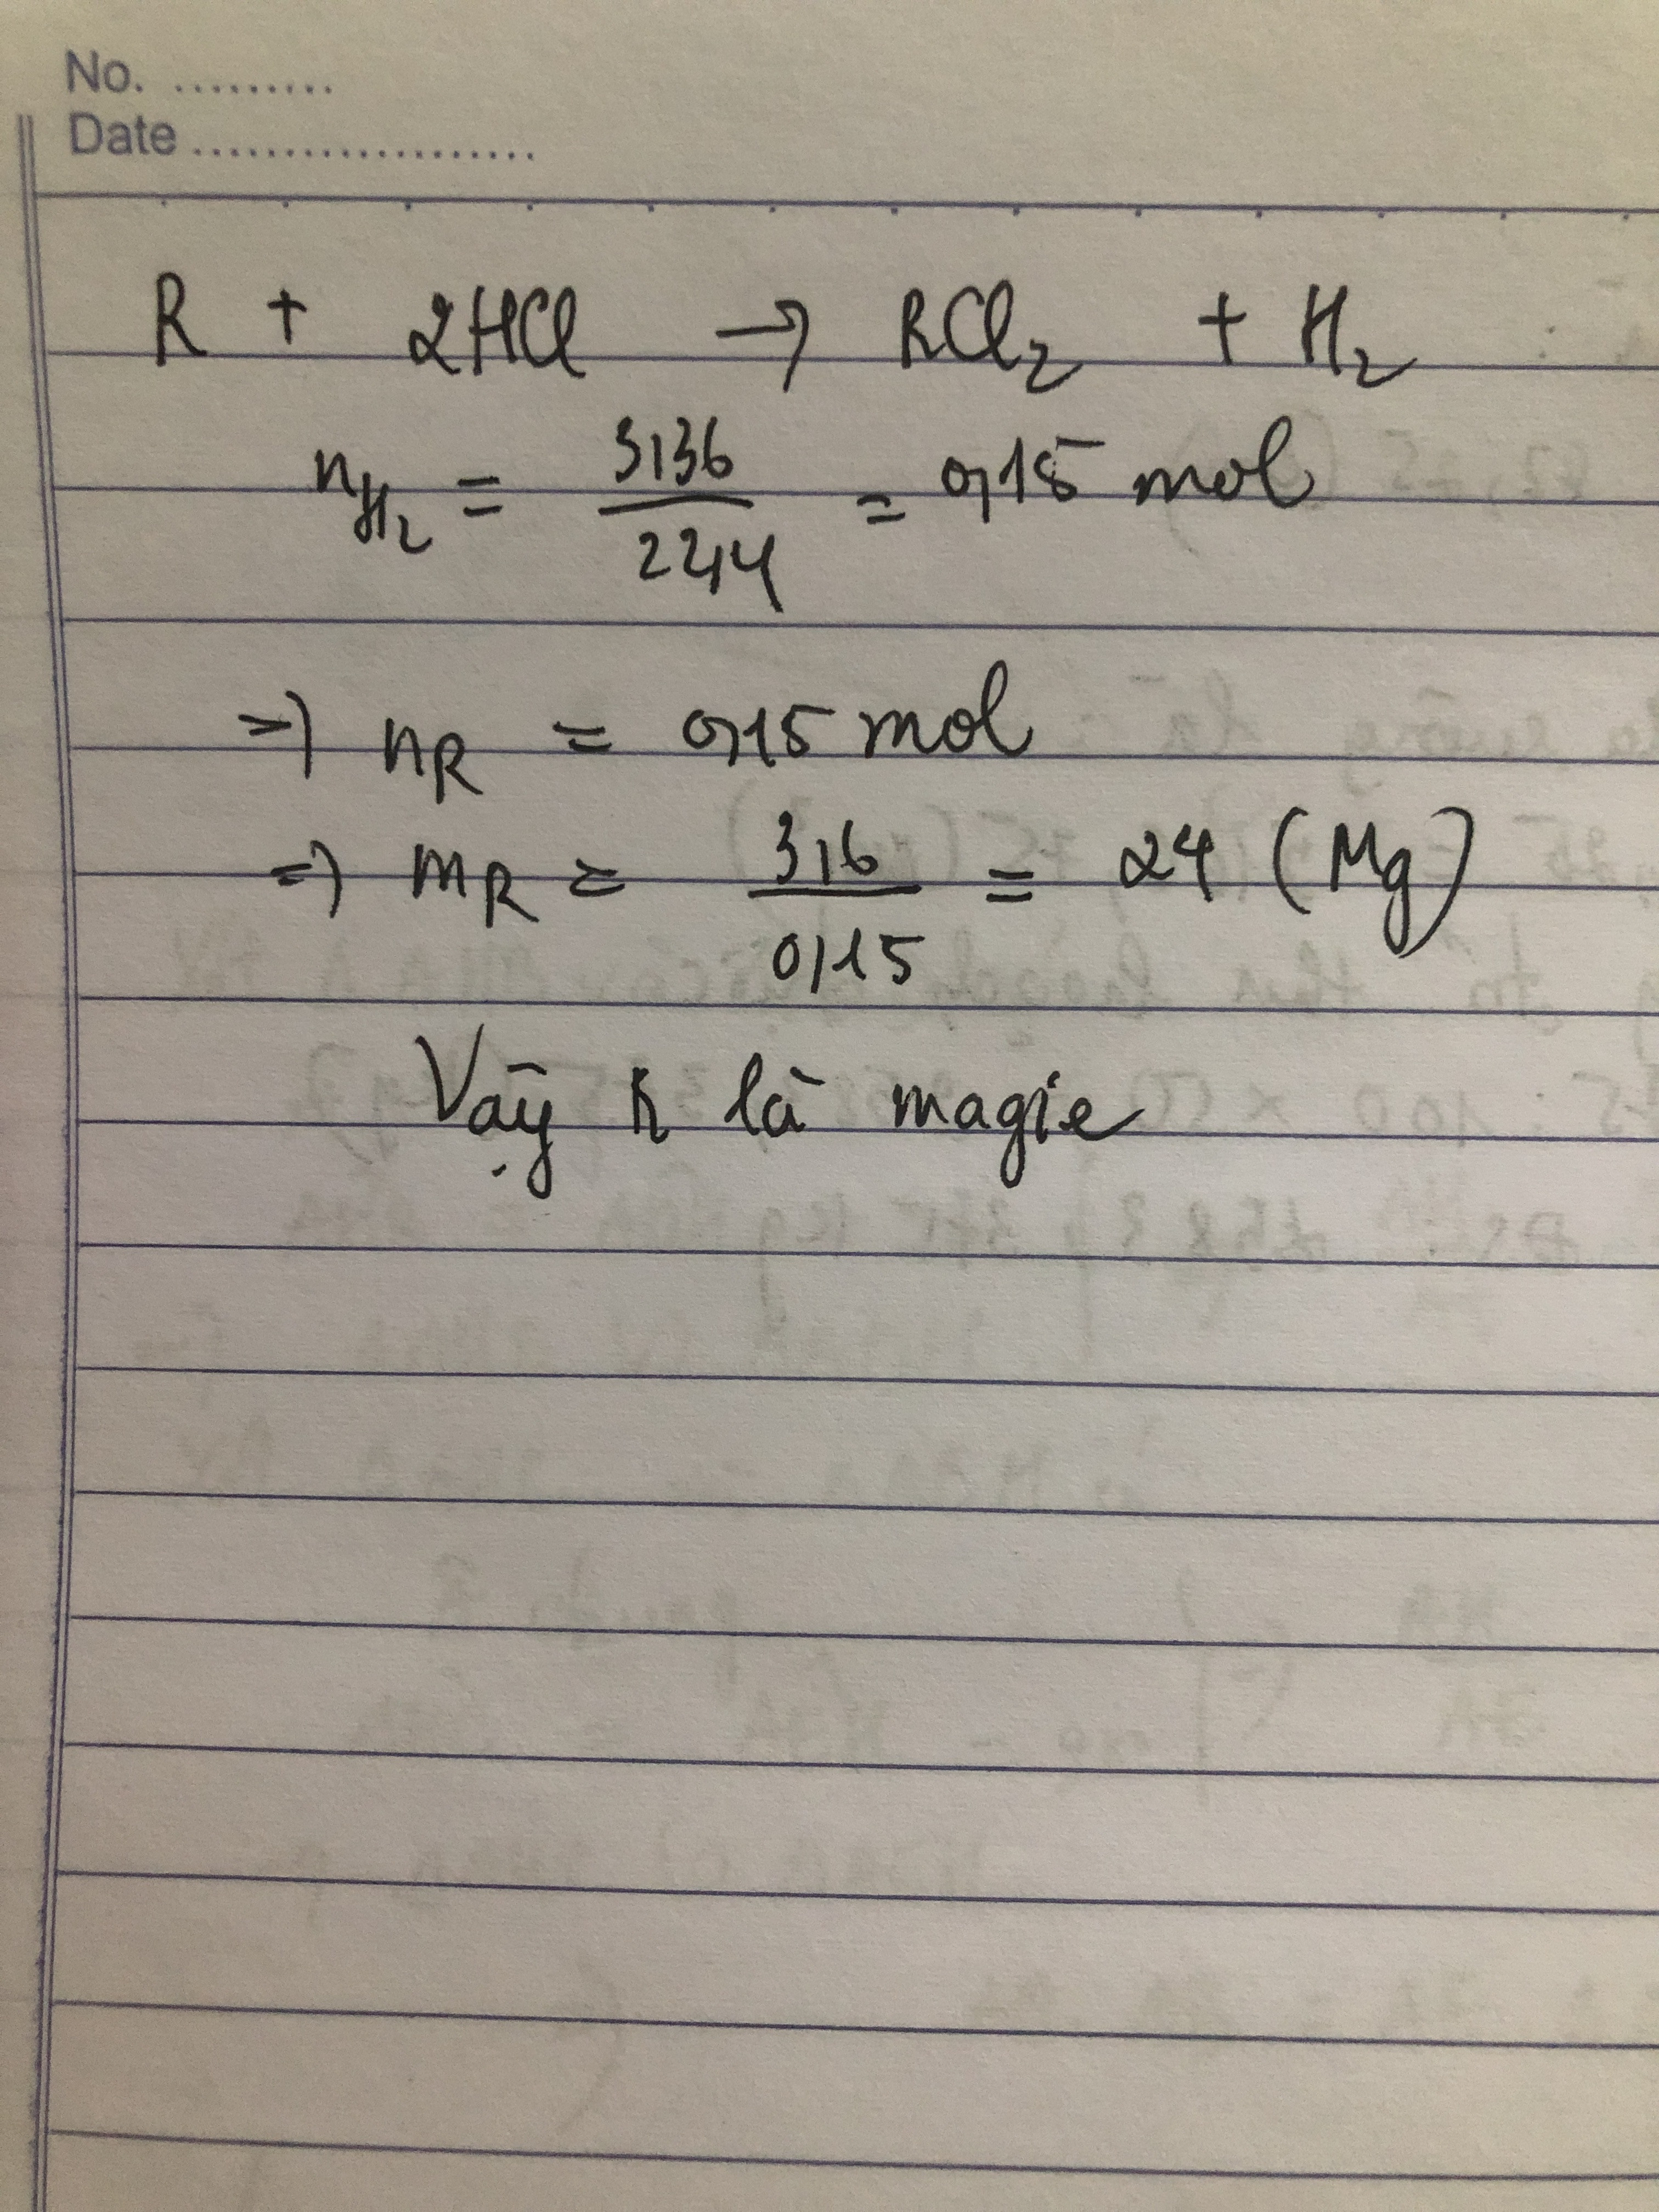 No. .........
Date ...................
R + 2HCl → RCl₂ + H₂
nH₂ = 3,36 / 22,4 = 0,15 mol
=> nR = 0,15 mol
=> mR = 3,6 / 0,15 = 24 (Mg)
Vậy R là magie